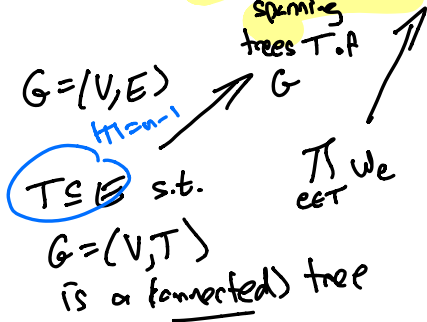 spanning
trees T of
G
G=(V,E)
|T|=n-1
T⊆E s.t.
∏ w_e
e∈T
G=(V,T)
is a (connected) tree